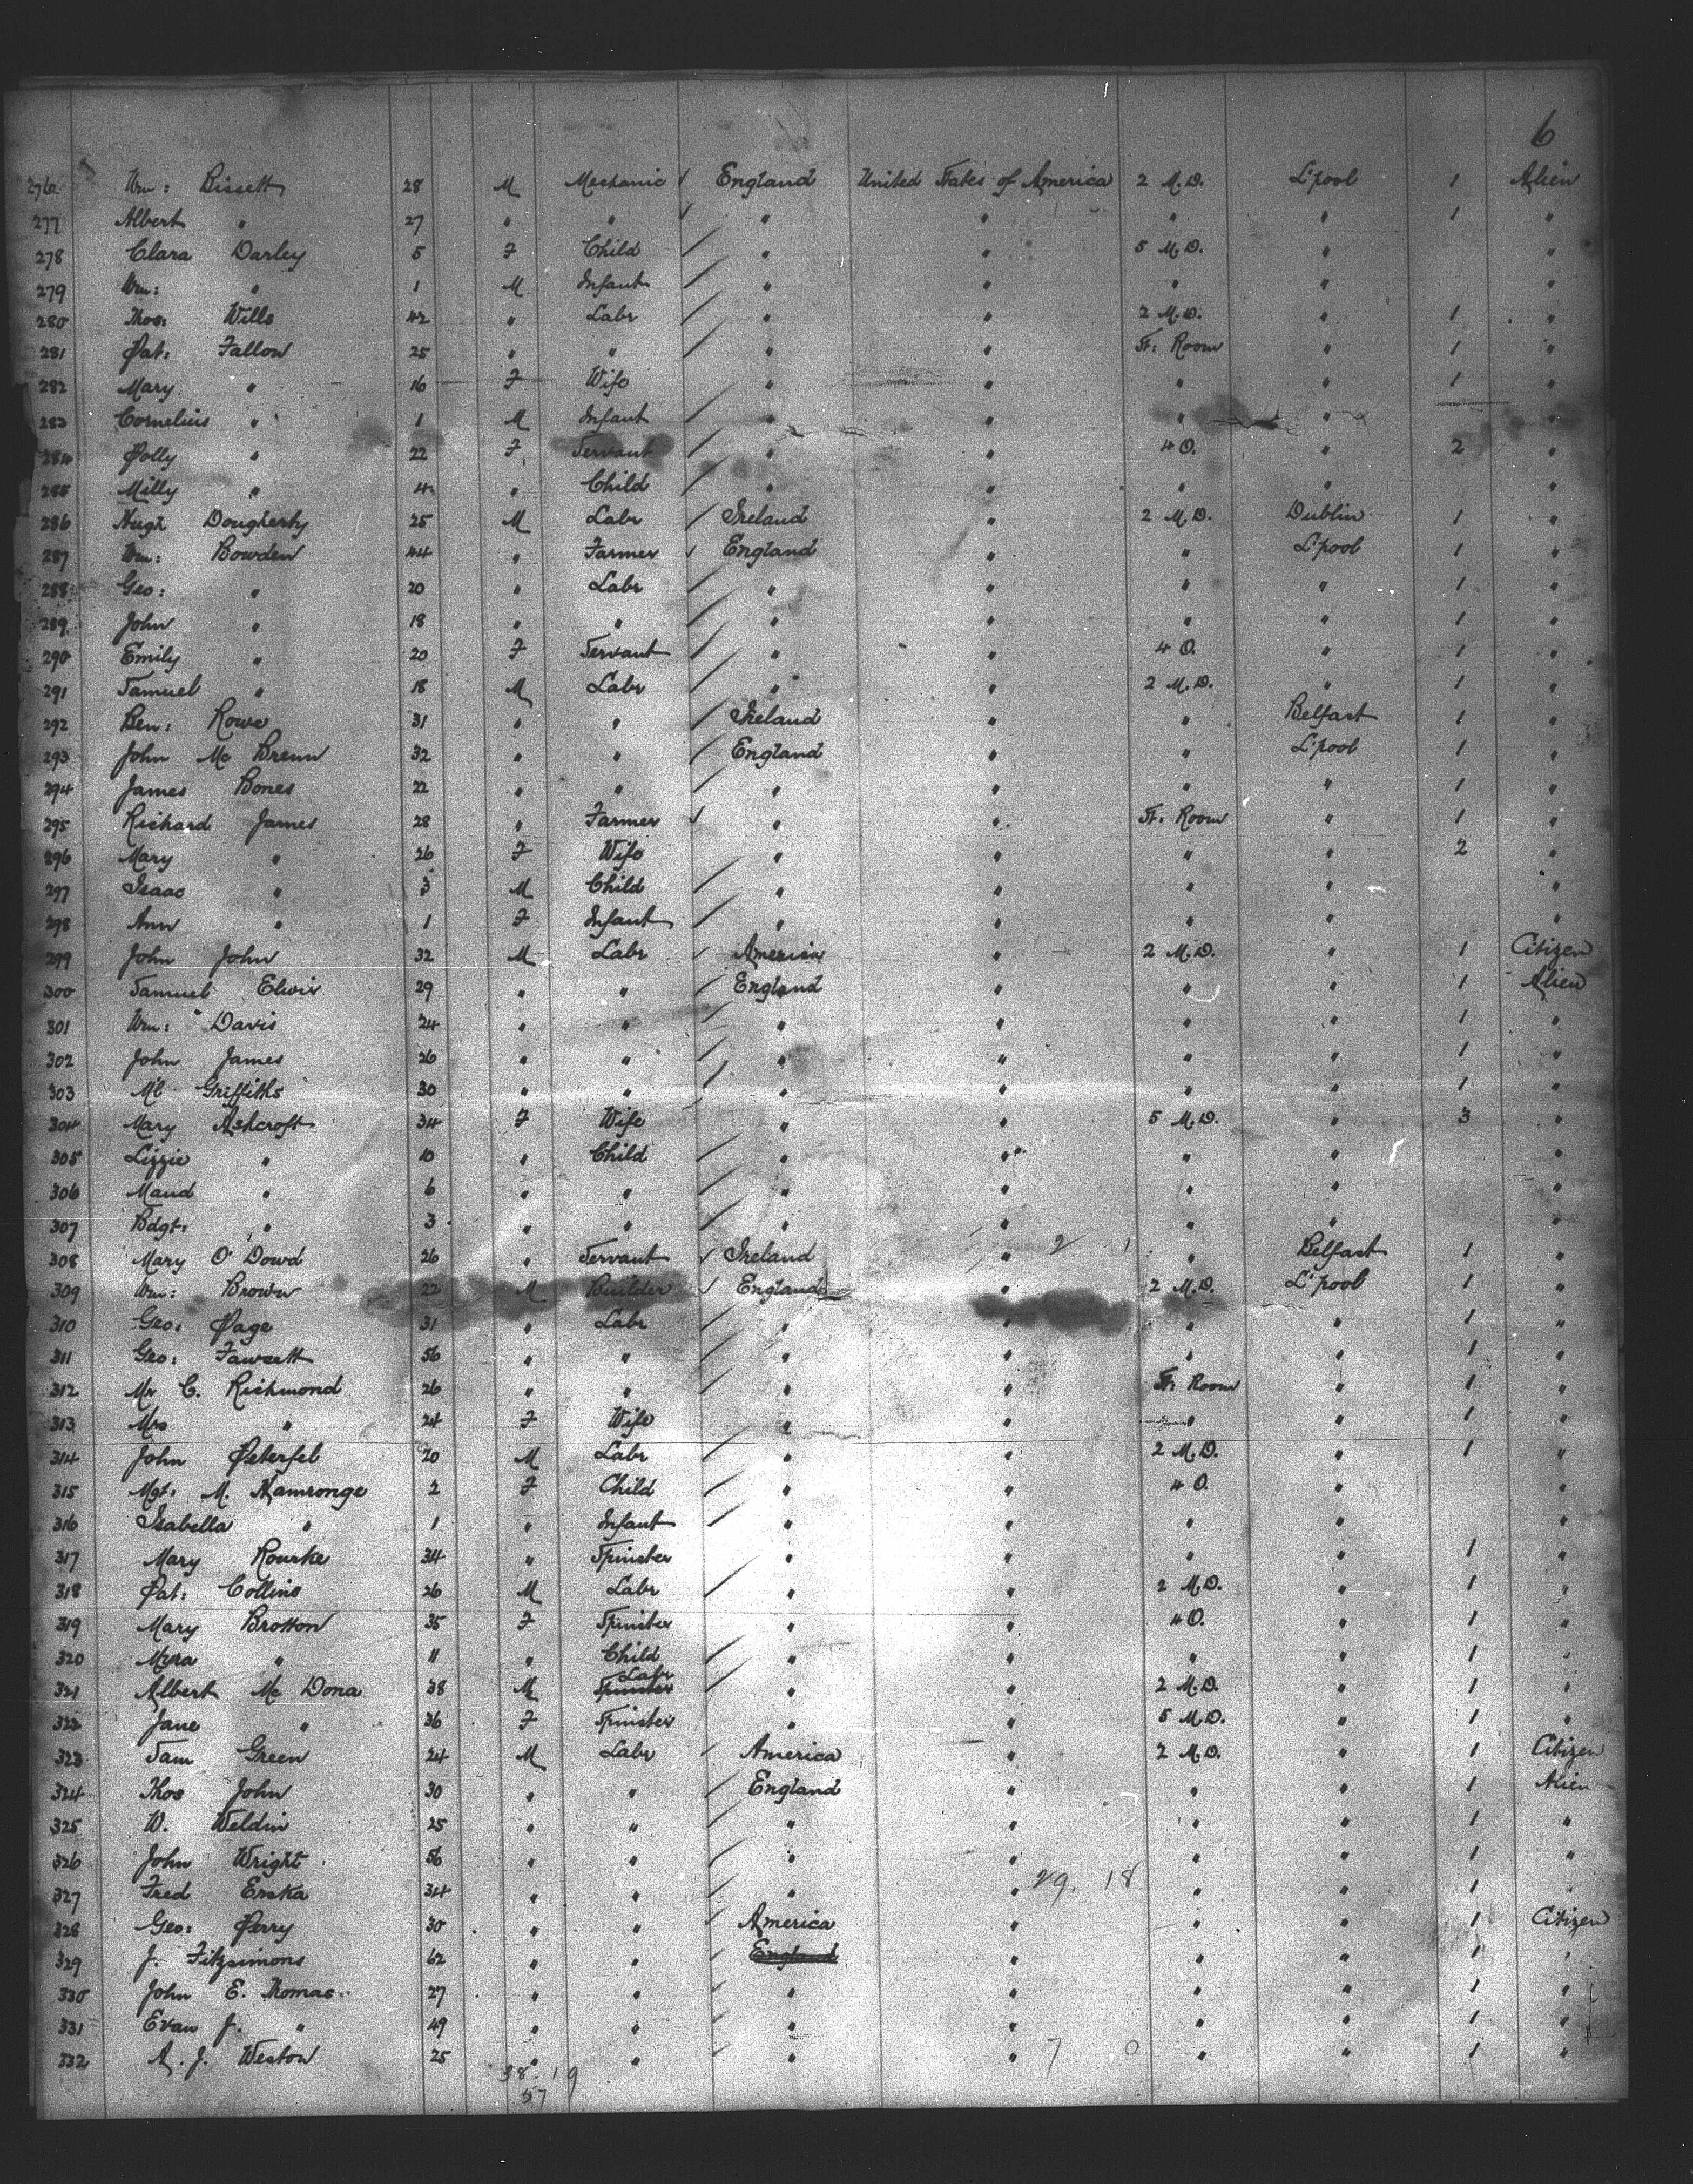 6
276 Wm: Bissett 28 M Mechanic England United States of America 2 M.D. L'pool 1 Alien
277 Albert " 27 " " " " " " 1 "
278 Clara Darley 5 F Child " " 5 M.D. " "
279 Wm: " 1 M Infant " " " " "
280 Thos: Wills 42 " Labr " " 2 M.D. " 1 "
281 Pat: Fallow 25 " " " " St: Room " 1 "
282 Mary " 16 F Wife " " " " 1 "
283 Cornelius " 1 M Infant " " " " "
284 Polly " 22 F Servant " " 4 O. " 2 "
285 Milly " 4 " Child " " " " "
286 Hugh Dougherty 25 M Labr Ireland " 2 M.D. Dublin 1 "
287 Wm: Bowden 44 " Farmer England " " L'pool 1 "
288 Geo: " 20 " Labr " " " " 1 "
289 John " 18 " " " " " " 1 "
290 Emily " 20 F Servant " " 4 O. " 1 "
291 Samuel " 18 M Labr " " 2 M.D. " 1 "
292 Ben: Rowe 31 " " Ireland " " Belfast 1 "
293 John Mc Brenn 32 " " England " " L'pool 1 "
294 James Bones 22 " " " " " " 1 "
295 Richard James 28 " Farmer " " St: Room " 1 "
296 Mary " 26 F Wife " " " " 2 "
297 Isaac " 3 M Child " " " " "
298 Ann " 1 F Infant " " " " "
299 John John 32 M Labr America " 2 M.D. " 1 Citizen
300 Samuel 29 " " England " " " 1 Alien
301 Wm: Davis 24 " " " " " " 1 "
302 John James 26 " " " " " " 1 "
303 Ml Griffiths 30 " " " " " " 1 "
304 Mary Ashcroft 34 F Wife " " 5 M.D. " 3 "
305 Lizzie " 10 " Child " " " " "
306 Maud " 6 " " " " " " "
307 Bdgt: " 3 " " " " " " "
308 Mary O'Dowd 26 " Servant Ireland " " Belfast 1 "
309 Wm: Brown 22 M Builder England " 2 M.D. L'pool 1 "
310 Geo: Page 31 " Labr " " " " 1 "
311 Geo: Fawcett 56 " " " " " " 1 "
312 Mr C. Richmond 26 " " " " St: Room " 1 "
313 Mrs " 24 F Wife " " " " 1 "
314 John Peterfel 20 M Labr " " 2 M.D. " 1 "
315 Mgt: M. Hamronge 2 F Child " " 4 O. " "
316 Isabella " 1 " Infant " " " " "
317 Mary Rourke 34 " Spinster " " " " 1 "
318 Pat: Collins 26 M Labr " " 2 M.D. " 1 "
319 Mary Brotton 35 F Spinster " " 4 O. " 1 "
320 Myra " 11 " Child " " " " 1 "
321 Albert Mc Dona 38 M Spinster Labr " " 2 M.D. " 1 "
322 Jane " 36 F Spinster " " 5 M.D. " 1 "
323 Sam Green 24 M Labr America " 2 M.D. " 1 Citizen
324 Thos John 30 " " England " " " 1 Alien
325 W. Weldin 25 " " " " " " 1 "
326 John Wright 56 " " " " " " 1 "
327 Fred Erska 34 " " " " " " 1 "
29. 18
328 Geo: Perry 30 " " America " " " 1 Citizen
329 J. Fitzsimons 62 " " England " " " 1 "
330 John E. Thomas 27 " " " " " " 1 "
331 Evan J. " 49 " " " " " " 1 "
332 A. J. Weston 25 " " " " " " 1 "
7 0
38. 19
57